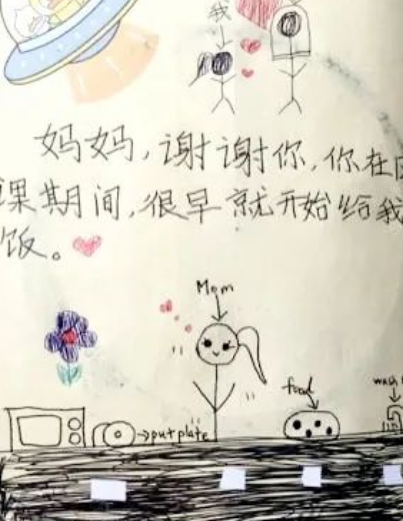 我
妈妈，谢谢你，你在
课期间，很早就开始给我
饭。
Mom
food
wash
put plate